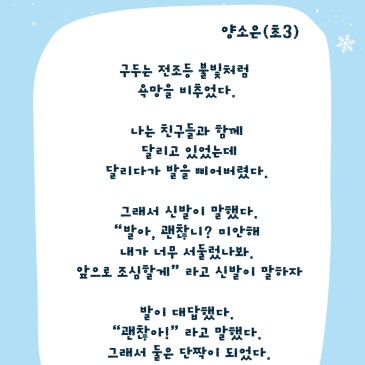 양소은(초3)
구두는 전조등 불빛처럼
욕망을 비추었다.
나는 친구들과 함께
달리고 있었는데
달리다가 발을 삐어버렸다.
그래서 신발이 말했다.
“발아, 괜찮니? 미안해
내가 너무 서둘렀나봐.
앞으로 조심할게” 라고 신발이 말하자
발이 대답했다.
“괜찮아!” 라고 말했다.
그래서 둘은 단짝이 되었다.